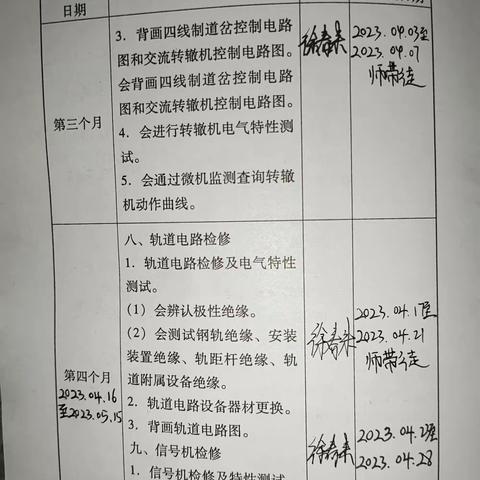 日期
3．背画四线制道岔控制电路
图和交流转辙机控制电路图。
会背画四线制道岔控制电路
图和交流转辙机控制电路图。
4．会进行转辙机电气特性测
试。
5．会通过微机监测查询转辙
机动作曲线。
第三个月
2023.04.03至
2023.04.07
师带徒
八、轨道电路检修
1．轨道电路检修及电气特性
测试。
(1) 会辨认极性绝缘。
(2) 会测试钢轨绝缘、安装
装置绝缘、轨距杆绝缘、轨
道附属设备绝缘。
2．轨道电路设备器材更换。
3．背画轨道电路图。
九、信号机检修
1．信号机检修及特性测试
第四个月
2023.04.16
至2023.05.15
2023.04.17至
2023.04.21
师带徒
2023.04.28